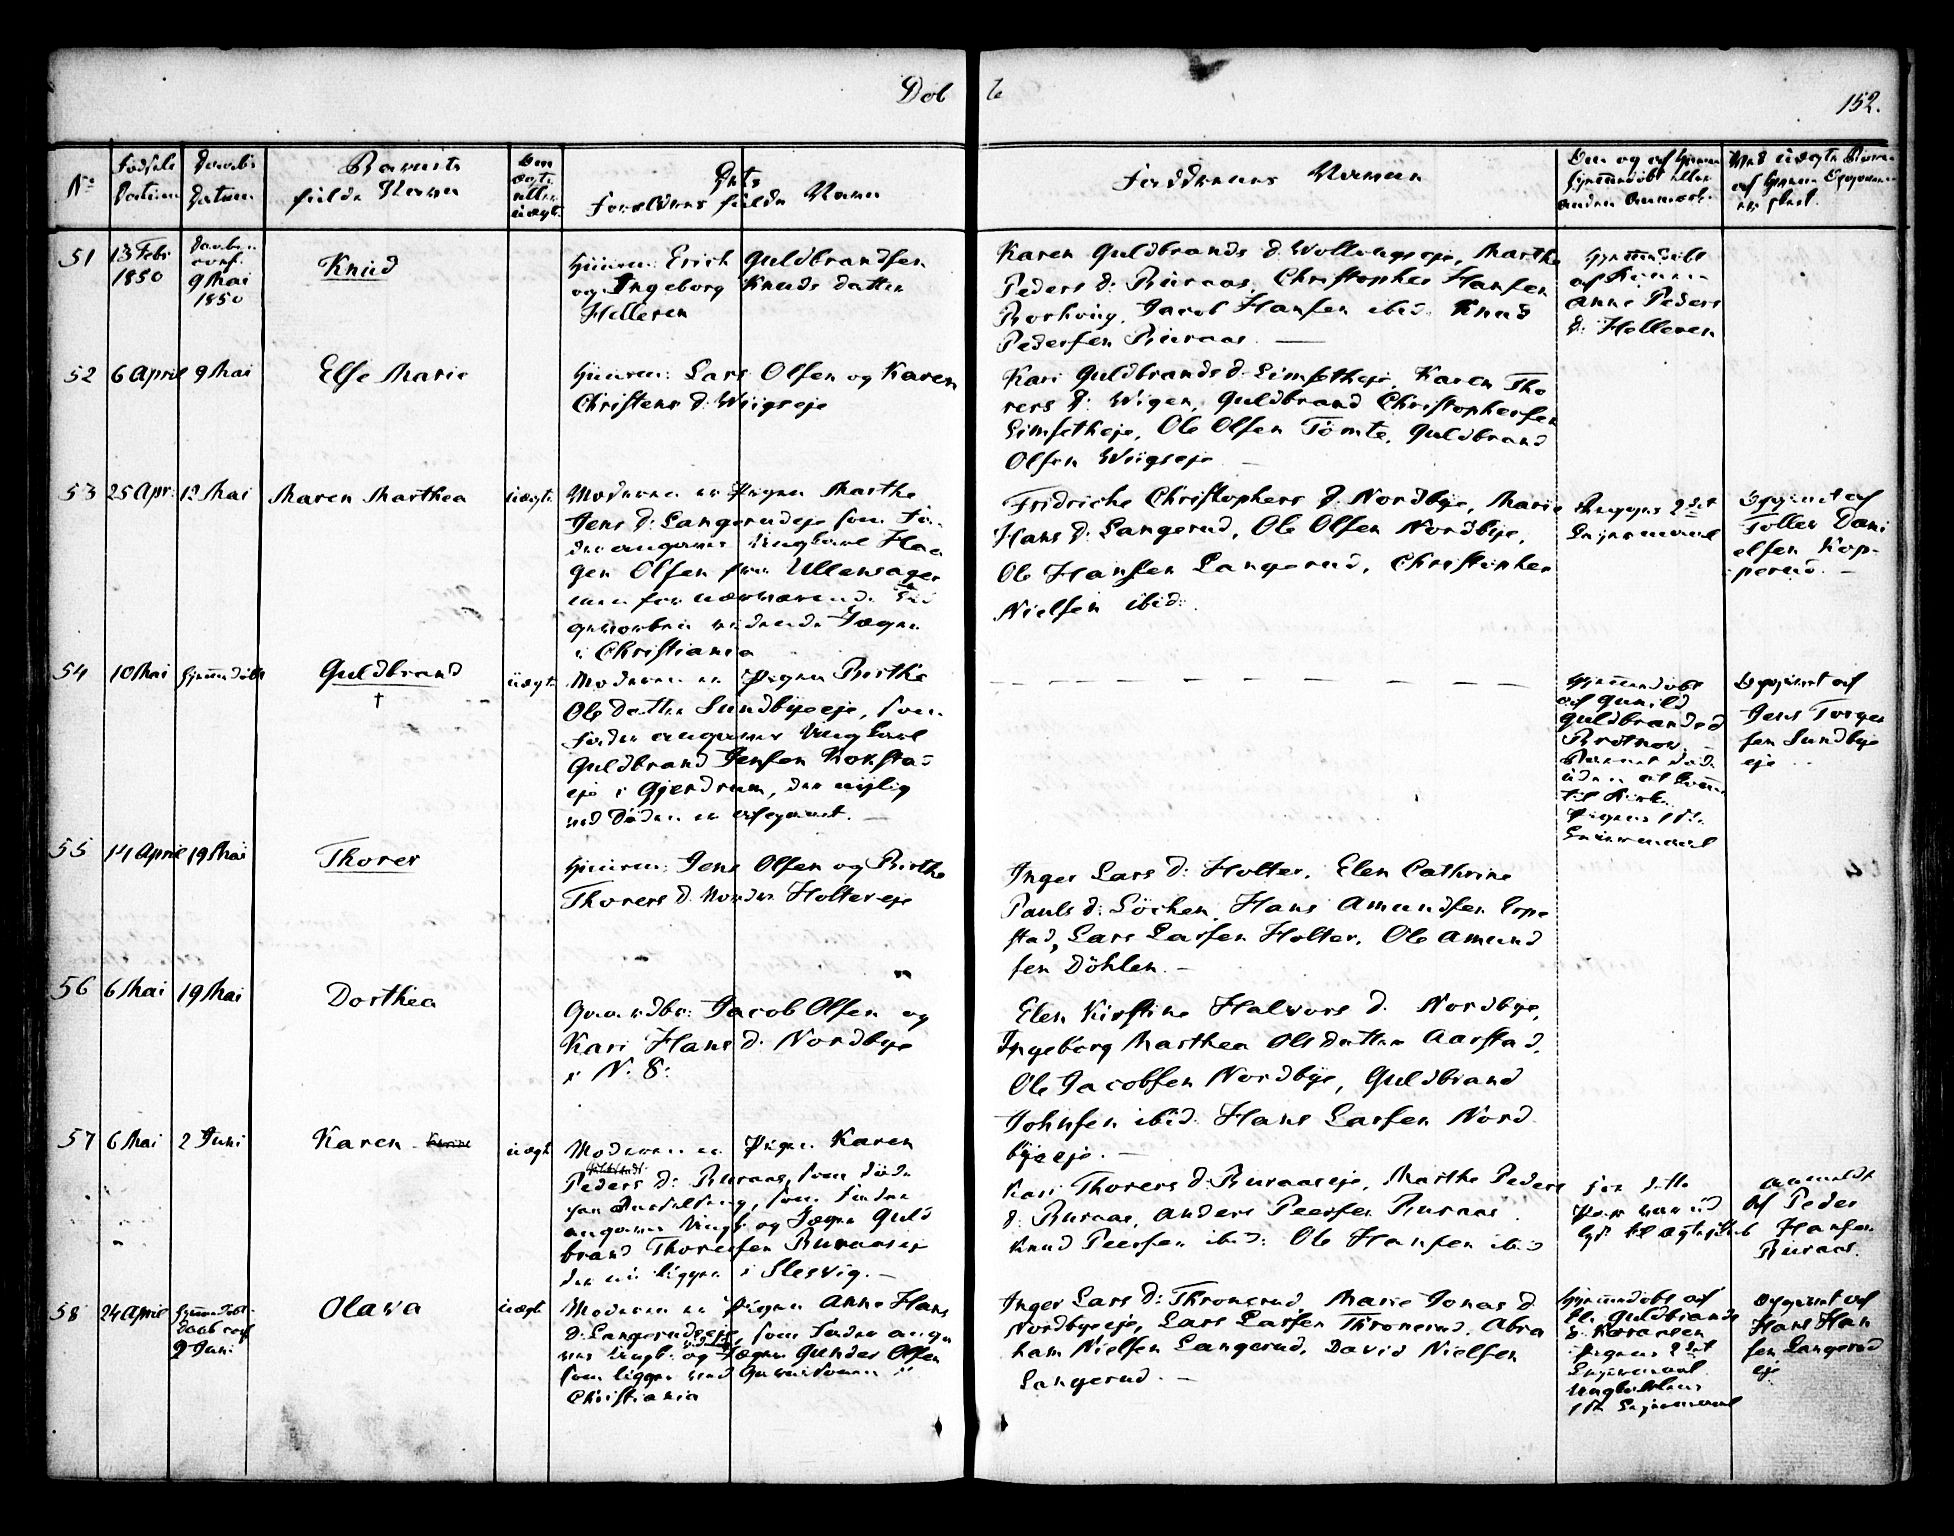 Døb
te
152.
No
Fødsels
Datum
Daabs
Datum
Barnets
fulde Navn
Om
ægte
eller
uægte
Dets
Forældres fulde Navn
Faddernes Navne
51
13 Febr
1850
Daaben
conf.
9 Mai
1850
Knud
Huusm: Erich Guldbrandsen
og Ingeborg Knuds datter
Helleren
Karen Guldbrands d. Wollaugseje, Marthe
Peders d: Buraas, Christopher Hansen
Jacob Hansen ibid. Knud
Pedersen Buraas.
Hjemmedøbt
af
Anne Peders
d: Helleren
52
6 April
9 Mai
Else Marie
Huusm: Lars Olsen og Karen
Christens d. Wiigseje
Kari Guldbrands d. Limsetheje, Karen Tho
rers d: Wigen, Guldbrand Christophersen
Limsetheje, Ole Olsen Tömte, Guldbrand
Olsen Wiigseje
53
25 Apr:
12 Mai
Maren Marthea
uægte
Moderen er Pigen Marthe
Jens d: Langerudeje som Fa-
der angives Ungkarl Haa
gen Olsen fra Ullensager
men for nærværende
gevorben ridende Jæger
i Christiania
Fridriche Christophers d. Nordbye, Marie
Hans d: Langerud, Ole Olsen Nordbye,
Ole Hansen Langerud, Christopher
Nielsen ibid:
Pigens 2det
Leiermaal
Opgivet af
Tollef Dani
elsen Kop-
perud.
54
10 Mai
Hjemmedøbt
Guldbrand
†
uægte
Moderen er Pigen Birthe
Ole datter Sundbyeeje, som
Fader angiver Ungkarl
Guldbrand Jensen Kokstad
eje i Gjerdrum, der nylig
ved Döden er afgaaet.
Hjemmedøbt
af Gunild
Guldbrands d
Brotnov
Barnet døde
uden at komme
til Kirke
Pigens 1ste
Leiermaal
Opgivet af
Jens Torger
sen Sundbye
eje
55
14 April
19 Mai
Thorer
Huusm: Jens Olsen og Birthe
Thorers d. Nordre Holtereje
Inger Lars d: Holter, Elen Cathrine
Pauls d: Löchen, Hans Amundsen Eppe
stad, Lars Larsen Holter, Ole Amund
sen Döhlen.
56
6 Mai
19 Mai
Dorthea
Gaardbr: Jacob Olsen og
Kari Hans d: Nordbye
i N: 8:
Elen Kirstine Halvors d. Nordbye,
Ingeborg Marthea Ols datter Aarstad,
Ole Jacobsen Nordbye, Guldbrand
Johnsen ibid. Hans Larsen Nord
byeeje.
57
6 Mai
2 Juni
Karen
uægte
Moderen er Pigen Karen
Peders d: Buraas, som døde
som Fader
angives Ungk. og Jæger Guld
brand Thorersen Buraaseje
der nu ligger i Slesvig.
Kari Thorers d. Buraaseje, Marthe Peders
d: Buraas, Anders Peersen Buraas
Knud Peersen ibid: Ole Hansen ibid
For dette
Par var ud
lyst til Ægteskab
Anmeldt
af Peder
Hansen
Buraas.
58
24 April
Hjemmedøbt
Daab conf
2 Juni
Olava
uægte
Moderen er Pigen Anne Hans
d: Langerudseje, som Fader angi
ves Ungk: og Jæger Gunder Olsen
som ligger ved Garnisonen i
Christiania
Inger Lars d: Thronerud, Marie Jonas d
Nordbyeeje, Lars Larsen Thronerud, Abra
ham Nielsen Langerud, David Nielsen
Langerud.
Hjemmedøbt af
Guldbrands
d.
Pigens 2det
Leiermaal
Ungkarlens
1ste Leiermaal
Opgivet af
Hans Han
sen Langerud
eje